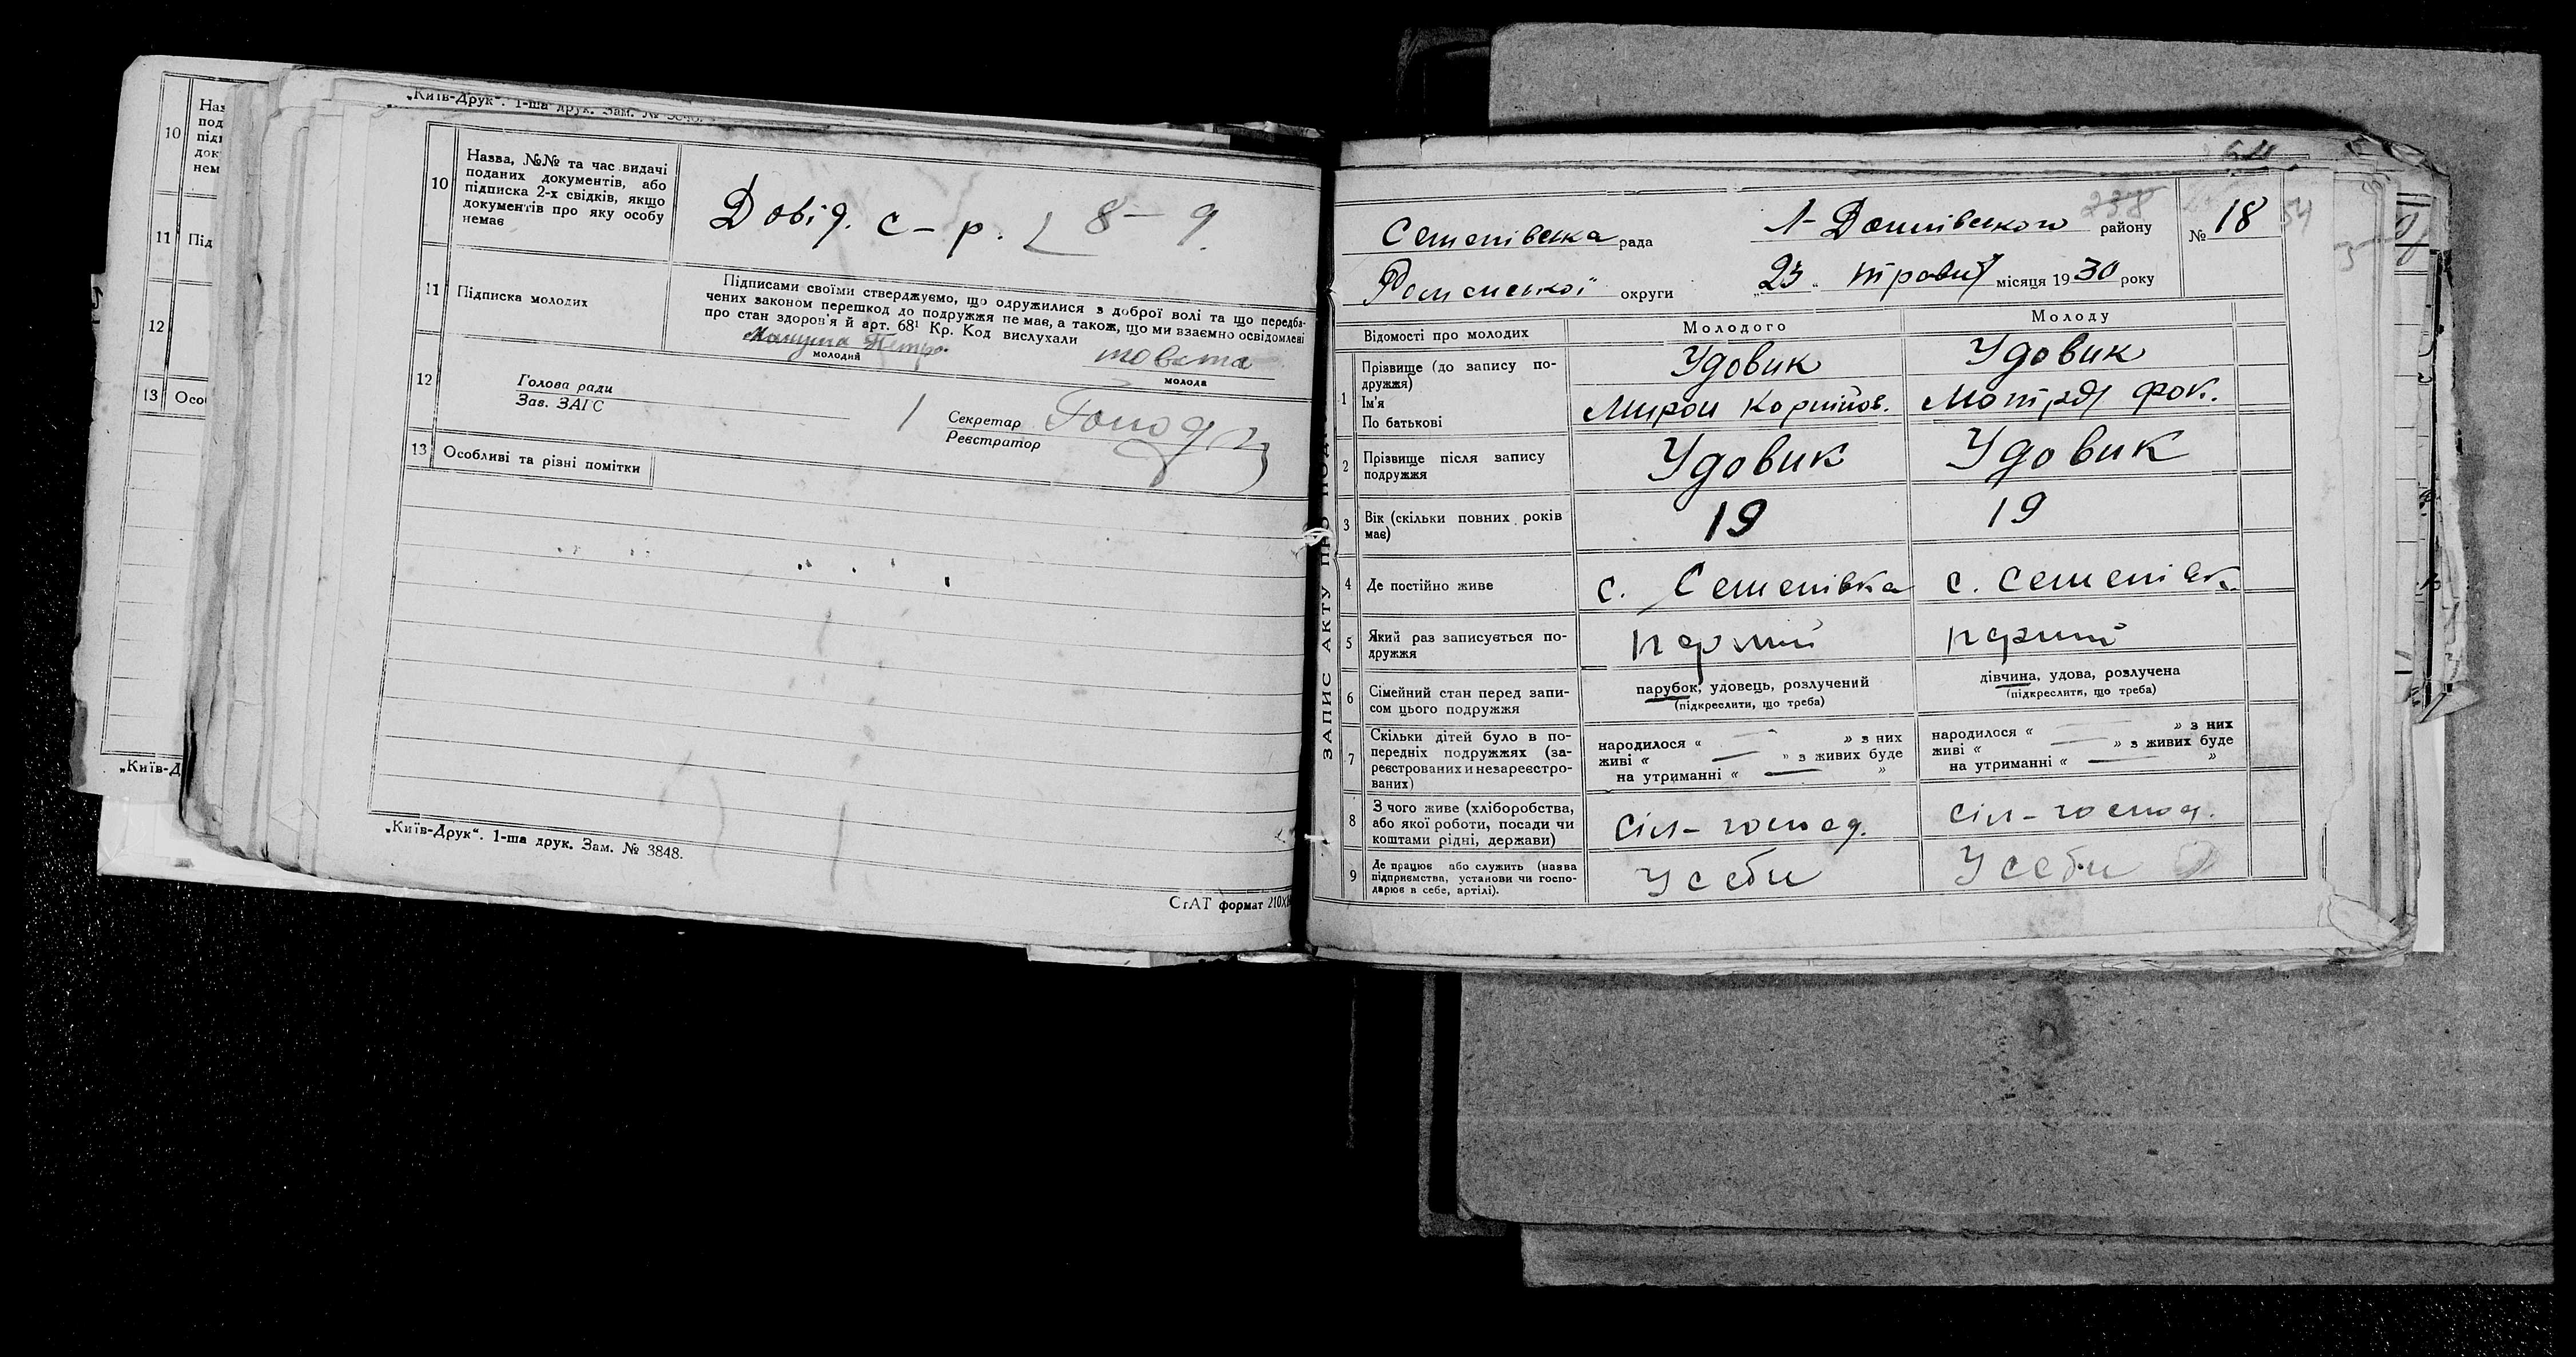 10
Наз
под
підп
док
нем
11 Під
12
13 Осоі
„Київ-Д
„Київ-Друк“. 1-ша друк. Зам. №
10 Назва, №№ та час видачі
поданих документів, або
підписка 2-х свідків, якщо
документів про яку особу
немає
Довід. с – р. 8 – 9.
11 Підписка молодих
Підписами своїми стверджуємо, що одружилися з доброї волі та що передба-
чених законом перешкод до подружжя не має, а також, що ми взаємно освідомлені
про стан здоров'я й арт. 68¹ Кр. Код вислухали
молодий
молода
12 Голова ради
Зав. ЗАГС
Секретар
Реєстратор
13 Особливі та різні помітки
„Київ-Друк“. 1-ша друк. Зам. № 3848.
СтАТ формат 210Х
ЗАПИС АКТУ ПРО
Семенівська рада
району
238
№ 18
54
Роменської округи
„23„ травня місяця 1930 року
Відомості про молодих
Молодого
Молоду
1 Прізвище (до запису по-
дружжя)
Ім'я
По батькові
Удовик
Мирон Корнійов.
Удовик
Мотря Фок.
2 Прізвище після запису
подружжя
Удовик
Удовик
3 Вік (скільки повних років
має)
19
19
4 Де постійно живе
с. Семенівка
с. Семенівк.
5 Який раз записується по-
дружжя
перший
перший
6 Сімейний стан перед запи-
сом цього подружжя
парубок, удовець, розлучений
(підкреслити, що треба)
дівчина, удова, розлучена
(підкреслити, що треба)
7 Скільки дітей було в по-
передніх подружжях (за-
реєстрованих и незареєстро-
ваних)
народилося « — » з них
живі « — » з живих буде
на утриманні « — »
народилося « — » з них
живі « — » з живих буде
на утриманні « — »
8 З чого живе (хліборобства,
або якої роботи, посади чи
коштами рідні, держави)
Сіл – господ.
Сіл – господ.
9 Де працює або служить (назва
підприємства, установи чи госпо-
дарює в себе, артілі).
У себи
У себи